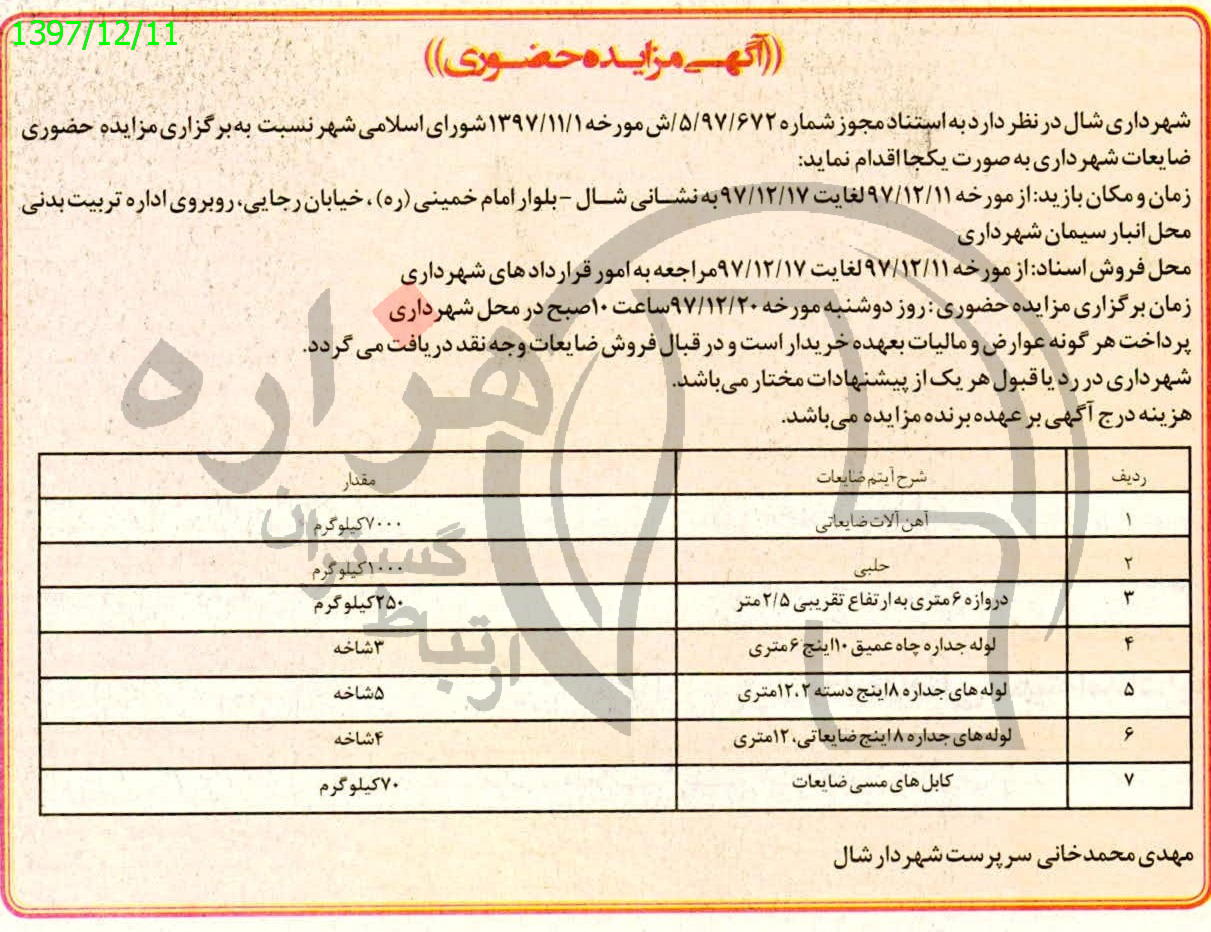 1397/12/11
((آگهی مزایده حضوری))
شهرداری شال در نظر دارد به استناد مجوز شماره ۵/۹۷/۶۷۲/ش مورخه ۱۳۹۷/۱۱/۱ شورای اسلامی شهر نسبت به برگزاری مزایده حضوری
ضایعات شهرداری به صورت یکجا اقدام نماید:
زمان و مکان بازید: از مورخه ۹۷/۱۲/۱۱ لغایت ۹۷/۱۲/۱۷ به نشانی شال - بلوار امام خمینی (ره)، خیابان رجایی، روبروی اداره تربیت بدنی
محل انبار سیمان شهرداری
محل فروش اسناد: از مورخه ۹۷/۱۲/۱۱ لغایت ۹۷/۱۲/۱۷ مراجعه به امور قراردادهای شهرداری
زمان برگزاری مزایده حضوری: روز دوشنبه مورخه ۹۷/۱۲/۲۰ ساعت ۱۰ صبح در محل شهرداری
پرداخت هر گونه عوارض و مالیات بعهده خریدار است و در قبال فروش ضایعات وجه نقد دریافت می گردد.
شهرداری در رد یا قبول هر یک از پیشنهادات مختار می‌باشد.
هزینه درج آگهی بر عهده برنده مزایده می‌باشد.
ردیف شرح آیتم ضایعات مقدار
۱ آهن آلات ضایعاتی ۷۰۰۰کیلوگرم
۲ حلبی ۱۰۰۰کیلوگرم
۳ دروازه ۶متری به ارتفاع تقریبی ۲/۵متر ۲۵۰کیلوگرم
۴ لوله جداره چاه عمیق ۱۰اینچ ۶متری ۳شاخه
۵ لوله های جداره ۸اینچ دسته ۲، ۱۲متری ۵شاخه
۶ لوله های جداره ۸ اینچ ضایعاتی، ۱۲متری ۴شاخه
۷ کابل های مسی ضایعات ۷۰کیلوگرم
مهدی محمدخانی سرپرست شهردار شال
هزاره
ارتباط
گستران